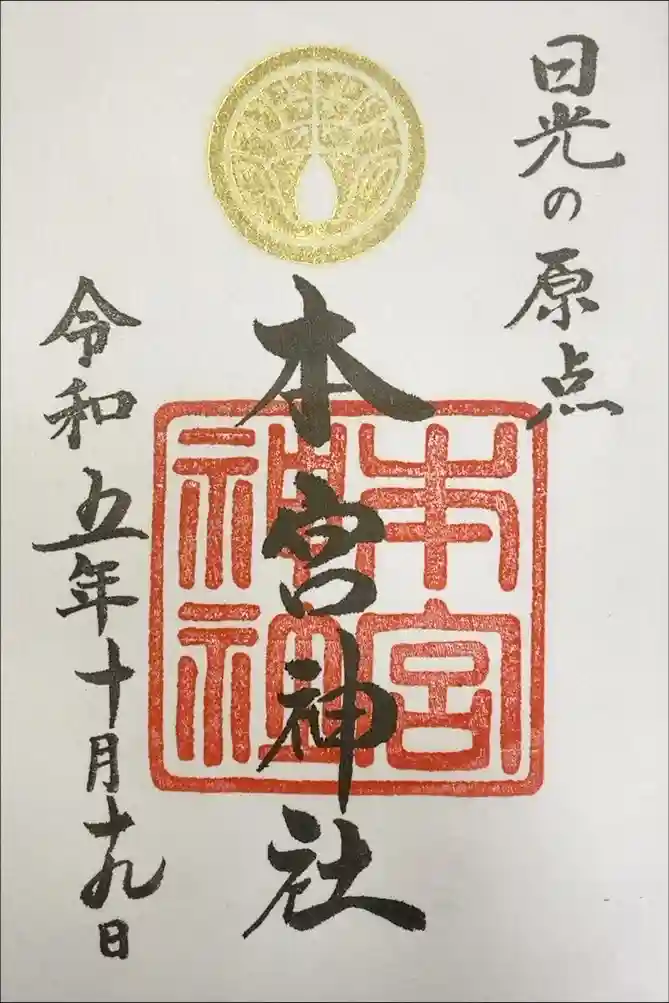 日光の原点
本宮神社
本宮神社
令和五年十月十九日